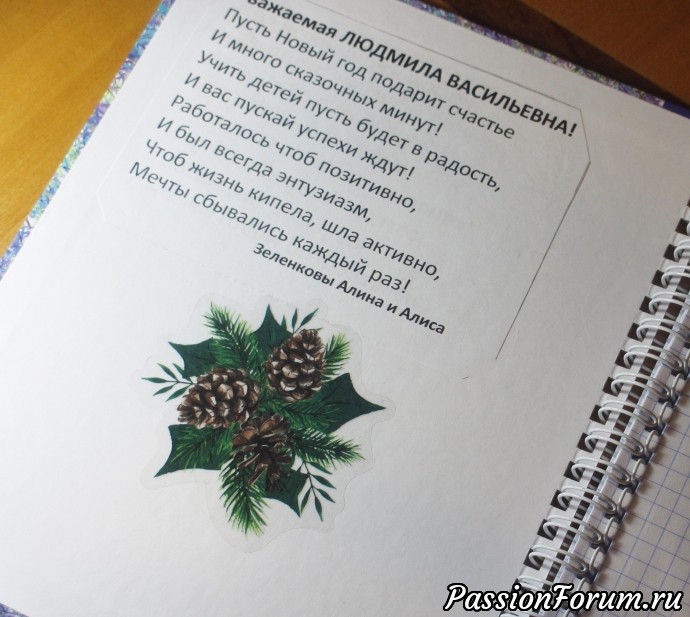 важаемая ЛЮДМИЛА ВАСИЛЬЕВНА!
Пусть Новый год подарит счастье
И много сказочных минут!
Учить детей пусть будет в радость,
И вас пускай успехи ждут!
Работалось чтоб позитивно,
И был всегда энтузиазм,
Чтоб жизнь кипела, шла активно,
Мечты сбывались каждый раз!
Зеленковы Алина и Алиса
PassionForum.ru